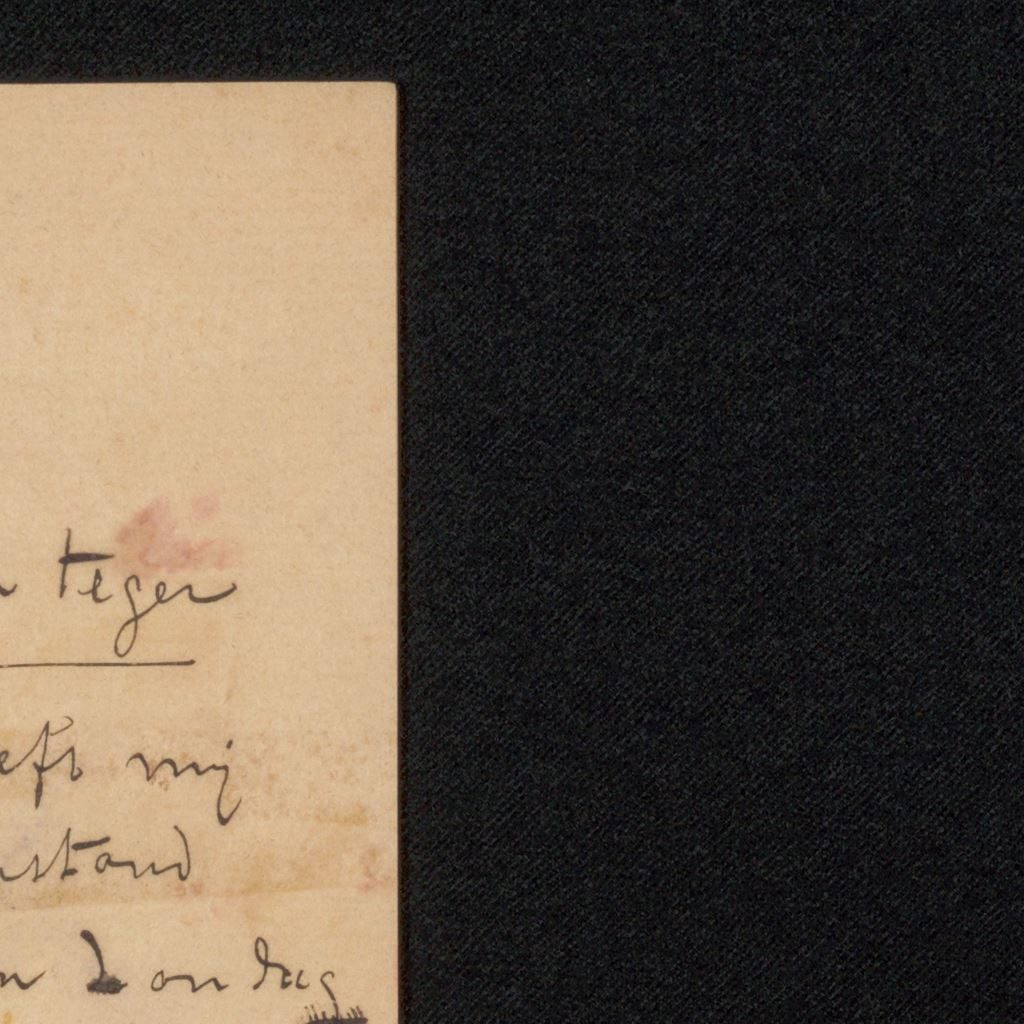 teger
eft mij
stand
n Zondag